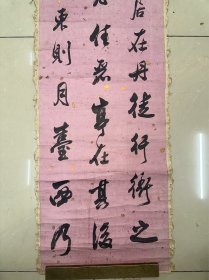 后在丹徒行衙之
月佳君亭在其後
東則月臺西乃